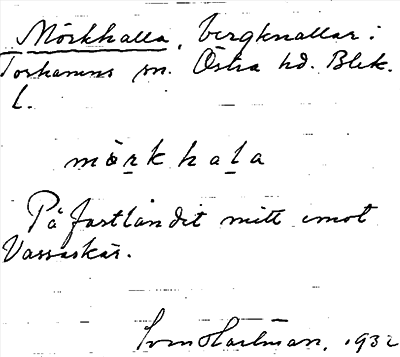 Mörkhalla, bergknallar i
Torhamns sn. Östra hd. Blek.
l.
mörkhala
På fastlandet mitt emot
Vassaskär.
Sven Hartman, 1932